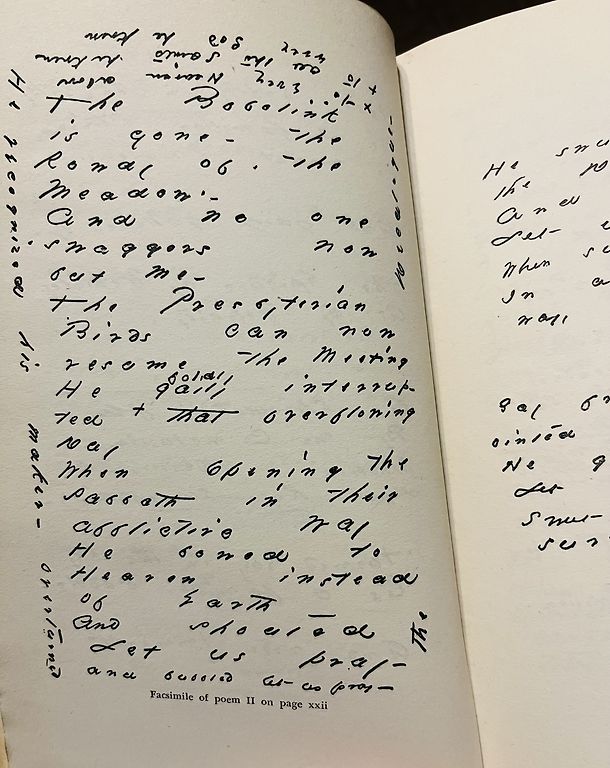 every God he knew
The Bobolink
is gone - the
Rowdy of the
Meadow -
And no one
swaggers now
but me -
The Presbyterian
Birds can now
resume the Meeting
boldly
He gaily interrup-
ted + that overflowing
Day
When opening the
Sabbath in their
afflictive Way
He bowed to
Heaven instead
of Earth
And shouted
Let us pray -
and bubbled let us pray -
He recognized his maker - overturned
the
Facsimile of poem II on page xxii
He
the
And
Let
When
In a
way
He
Let